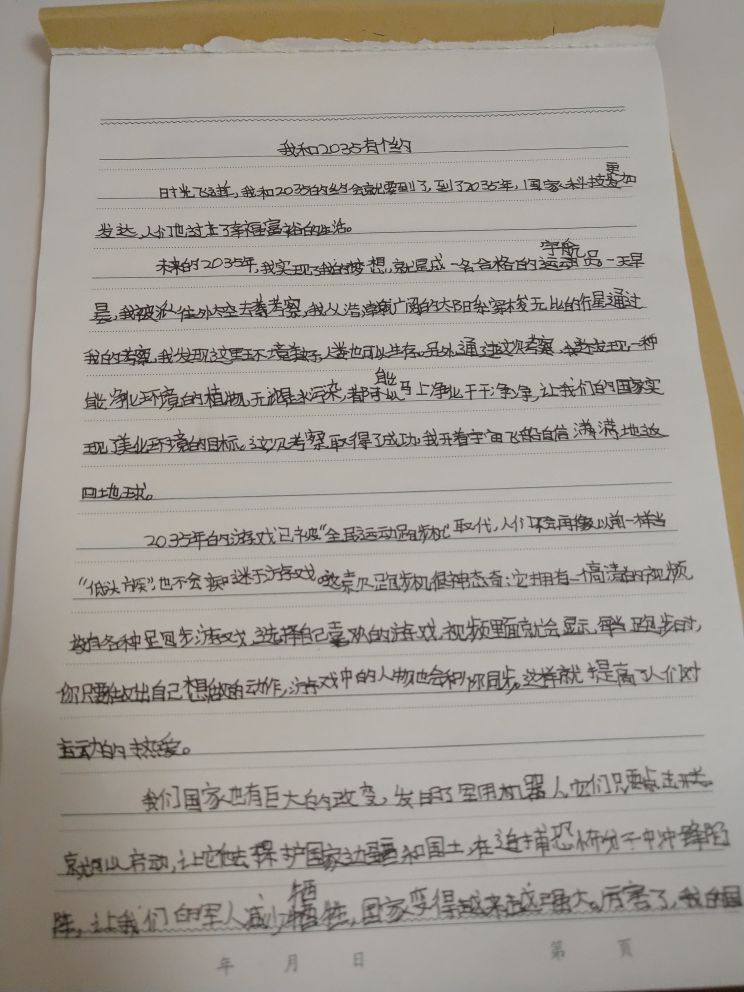 我和2035有个约
时光飞逝，我和2035的约会就要到了，到了2035年，国家科技更加
发达，人们也过上了幸福富裕的生活。
未来的2035年，我实现了我的梦想，就是成一名合格的宇航员。一天早
晨，我被派往外太空去考察，我从浩瀚广阔的太阳系穿梭无比的行星通过
我的考察，我发现这里环境美好，人类也可以生存。另外通过这次考察，发现一种
能净化环境的植物，无论是水污染，都能马上净化干干净净，让我们的国家实
现了美化环境的目标。这次考察取得了成功，我开着宇宙飞船自信满满地返
回地球。
2035年的游戏已被“全民运动跑步机”取代，人们不会再像以前一样当
“低头族”，也不会沉迷于游戏。这跑步机很神奇：它拥有一个高清的视频
有各种跑步游戏，选择自己喜欢的游戏，视频里面就会显示，每当跑步时，
你只要做出自己想做的动作，游戏中的人物也会和你同步。这样就提高了人们对
运动的热爱。
我们国家也有巨大的改变，发明了军用机器人，它们只要点击开关。
就可以启动，让它们去保护国家边疆和国土，在追捕恐怖分子中冲锋陷
阵，让我们的军人减少牺牲，国家变得越来越强大。厉害了，我的国
年 月 日 第 页